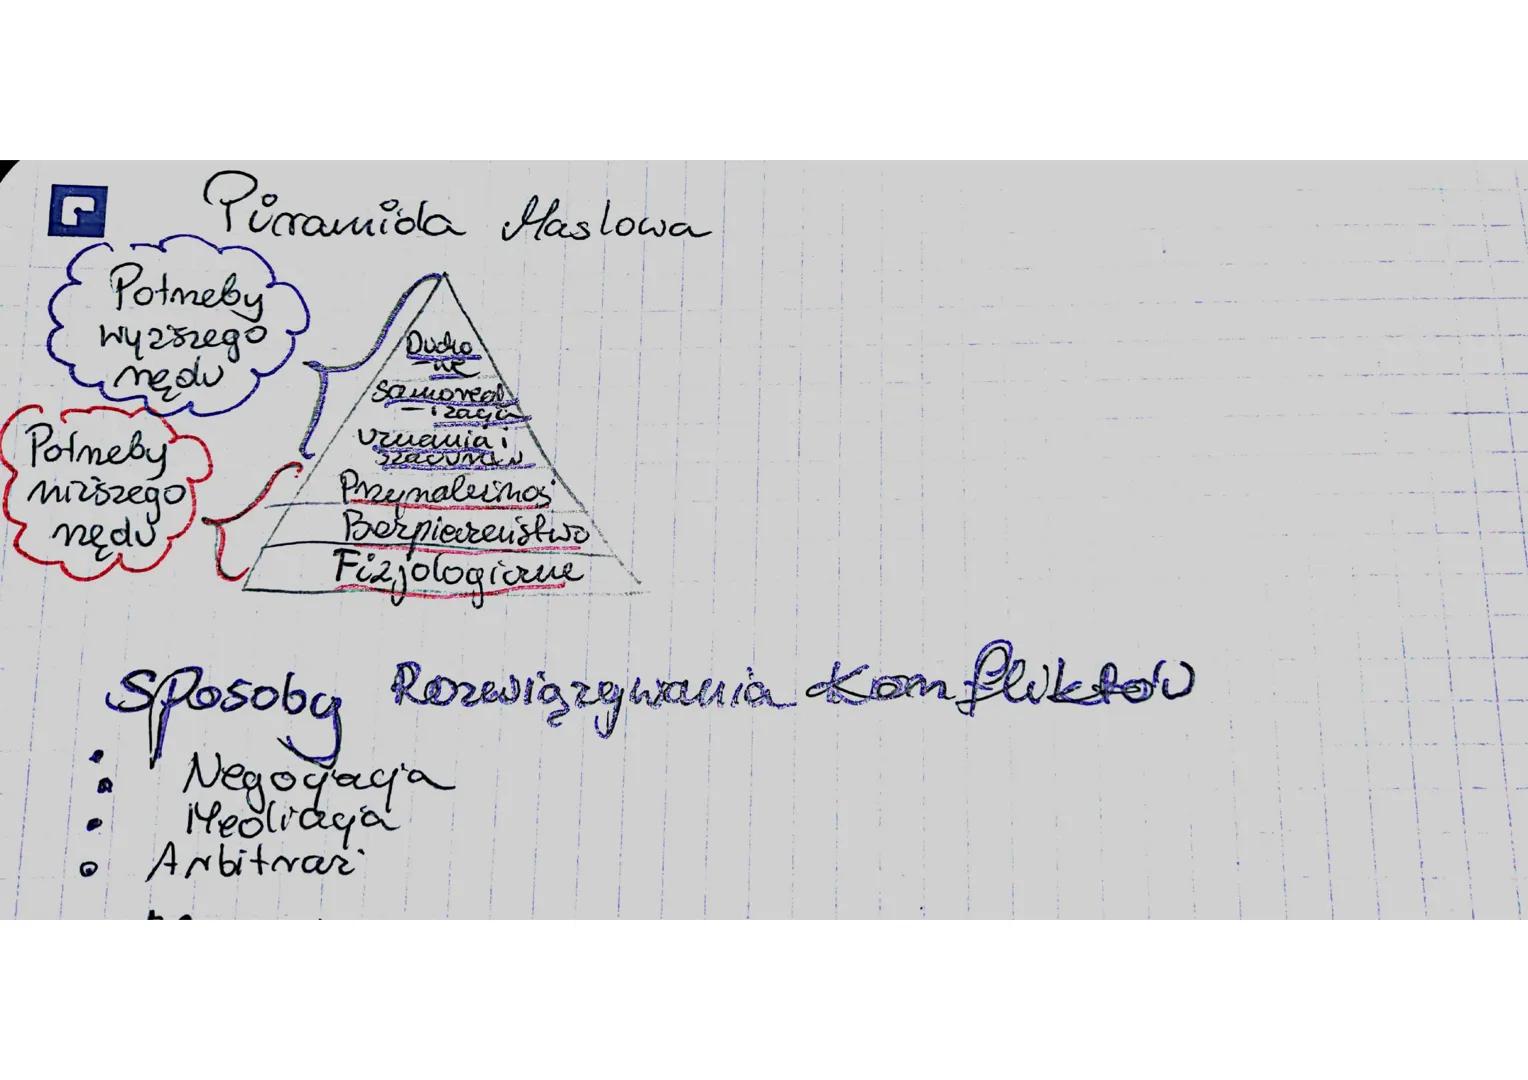 Piramida Maslowa
Potrzeby
wyższego
rzędu
Ducho
-we
samoreal
-izacja
uznania i
szacunku
Potrzeby
niższego
rzędu
Przynależność
Bezpieczeństwo
Fizjologiczne
Sposoby Rozwiązywania Konfliktów
Negocjacja
Mediacja
Arbitraż